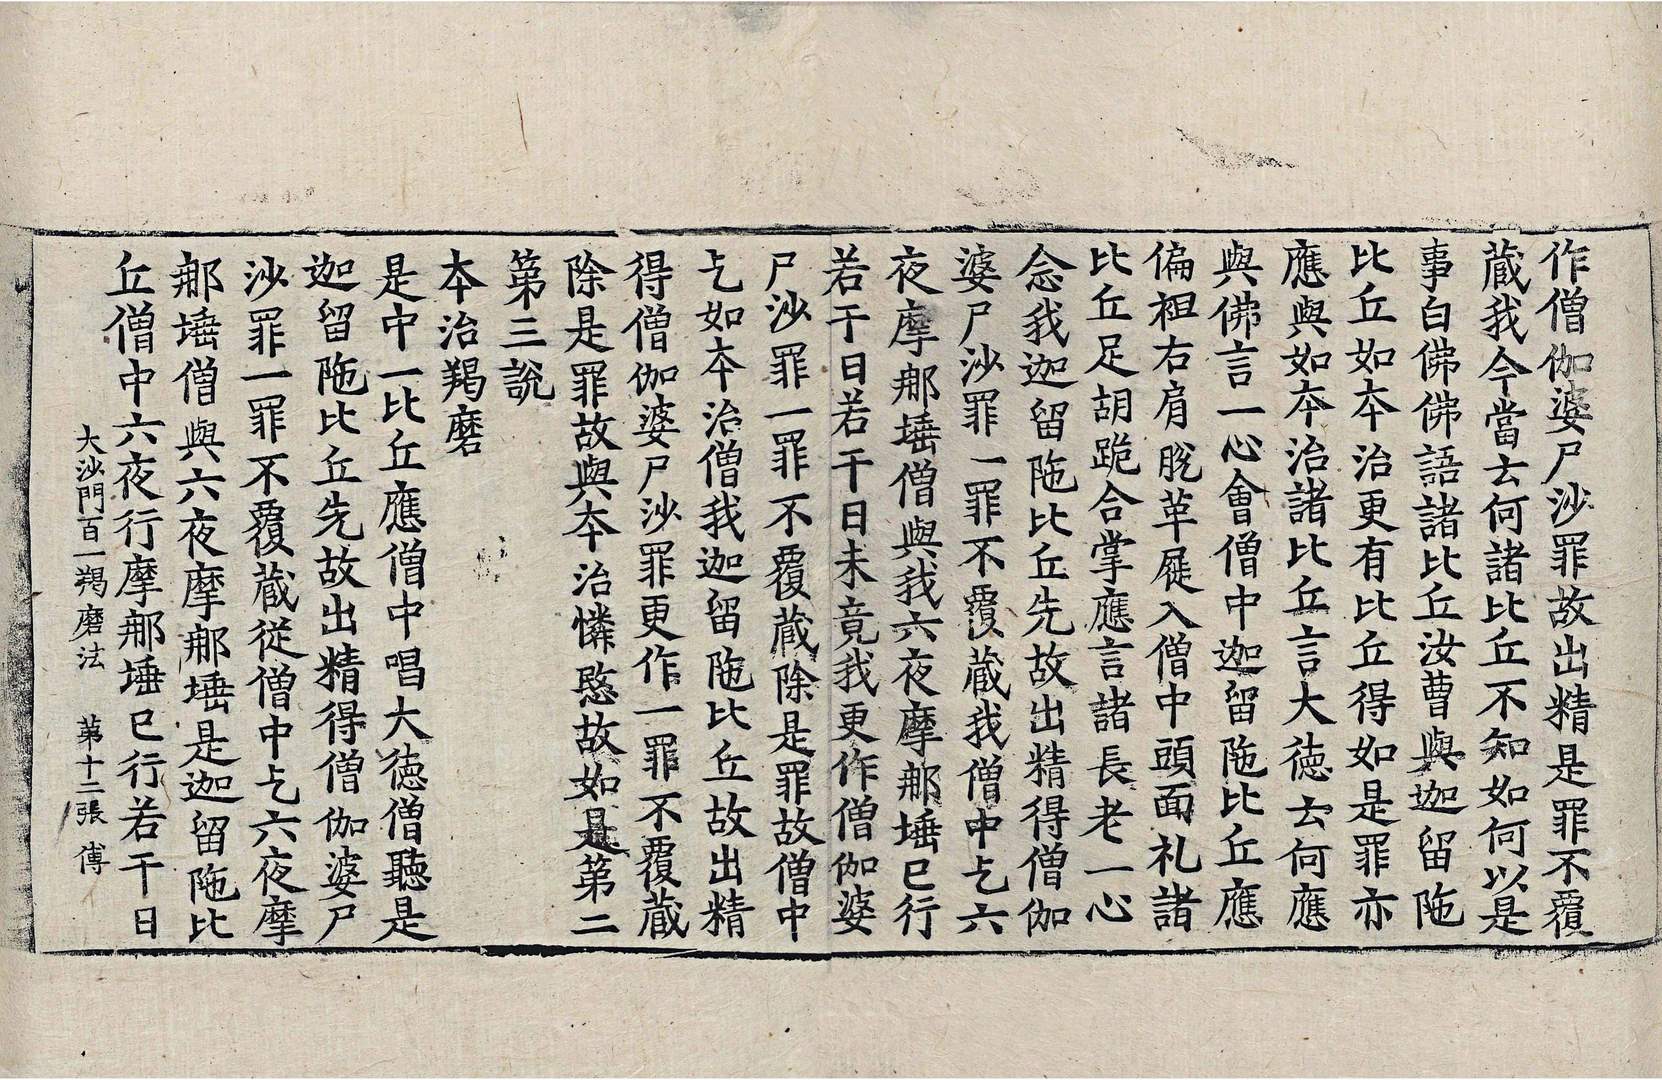 作僧伽婆尸沙罪故出精是罪不覆
藏我今當去何諸比丘不知如何以是
事白佛佛語諸比丘汝曹與迦留陁
比丘如本治更有比丘得如是罪亦
應與如本治諸比丘言大徳去何應
與佛言一心會僧中迦留陁比丘應
偏袒右肩脫革屣入僧中頭面礼諸
比丘足胡跪合掌應言諸長老一心
念我迦留陁比丘先故出精得僧伽
婆尸沙罪一罪不覆藏我僧中乞六
夜摩㖠埵僧與我六夜摩㖠埵已行
若干日若干日未竟我更作僧伽婆
尸沙罪一罪不覆藏除是罪故僧中
乞如本治僧我迦留陁比丘故出精
得僧伽婆尸沙罪更作一罪不覆藏
除是罪故與本治憐愍故如是第二
第三說
本治羯磨
是中一比丘應僧中唱大徳僧聽是
迦留陁比丘先故出精得僧伽婆尸
沙罪一罪不覆藏從僧中乞六夜摩
㖠埵僧與六夜摩㖠埵是迦留陁比
丘僧中六夜行摩㖠埵已行若干日
大沙門百一羯磨法 第十二張 傅